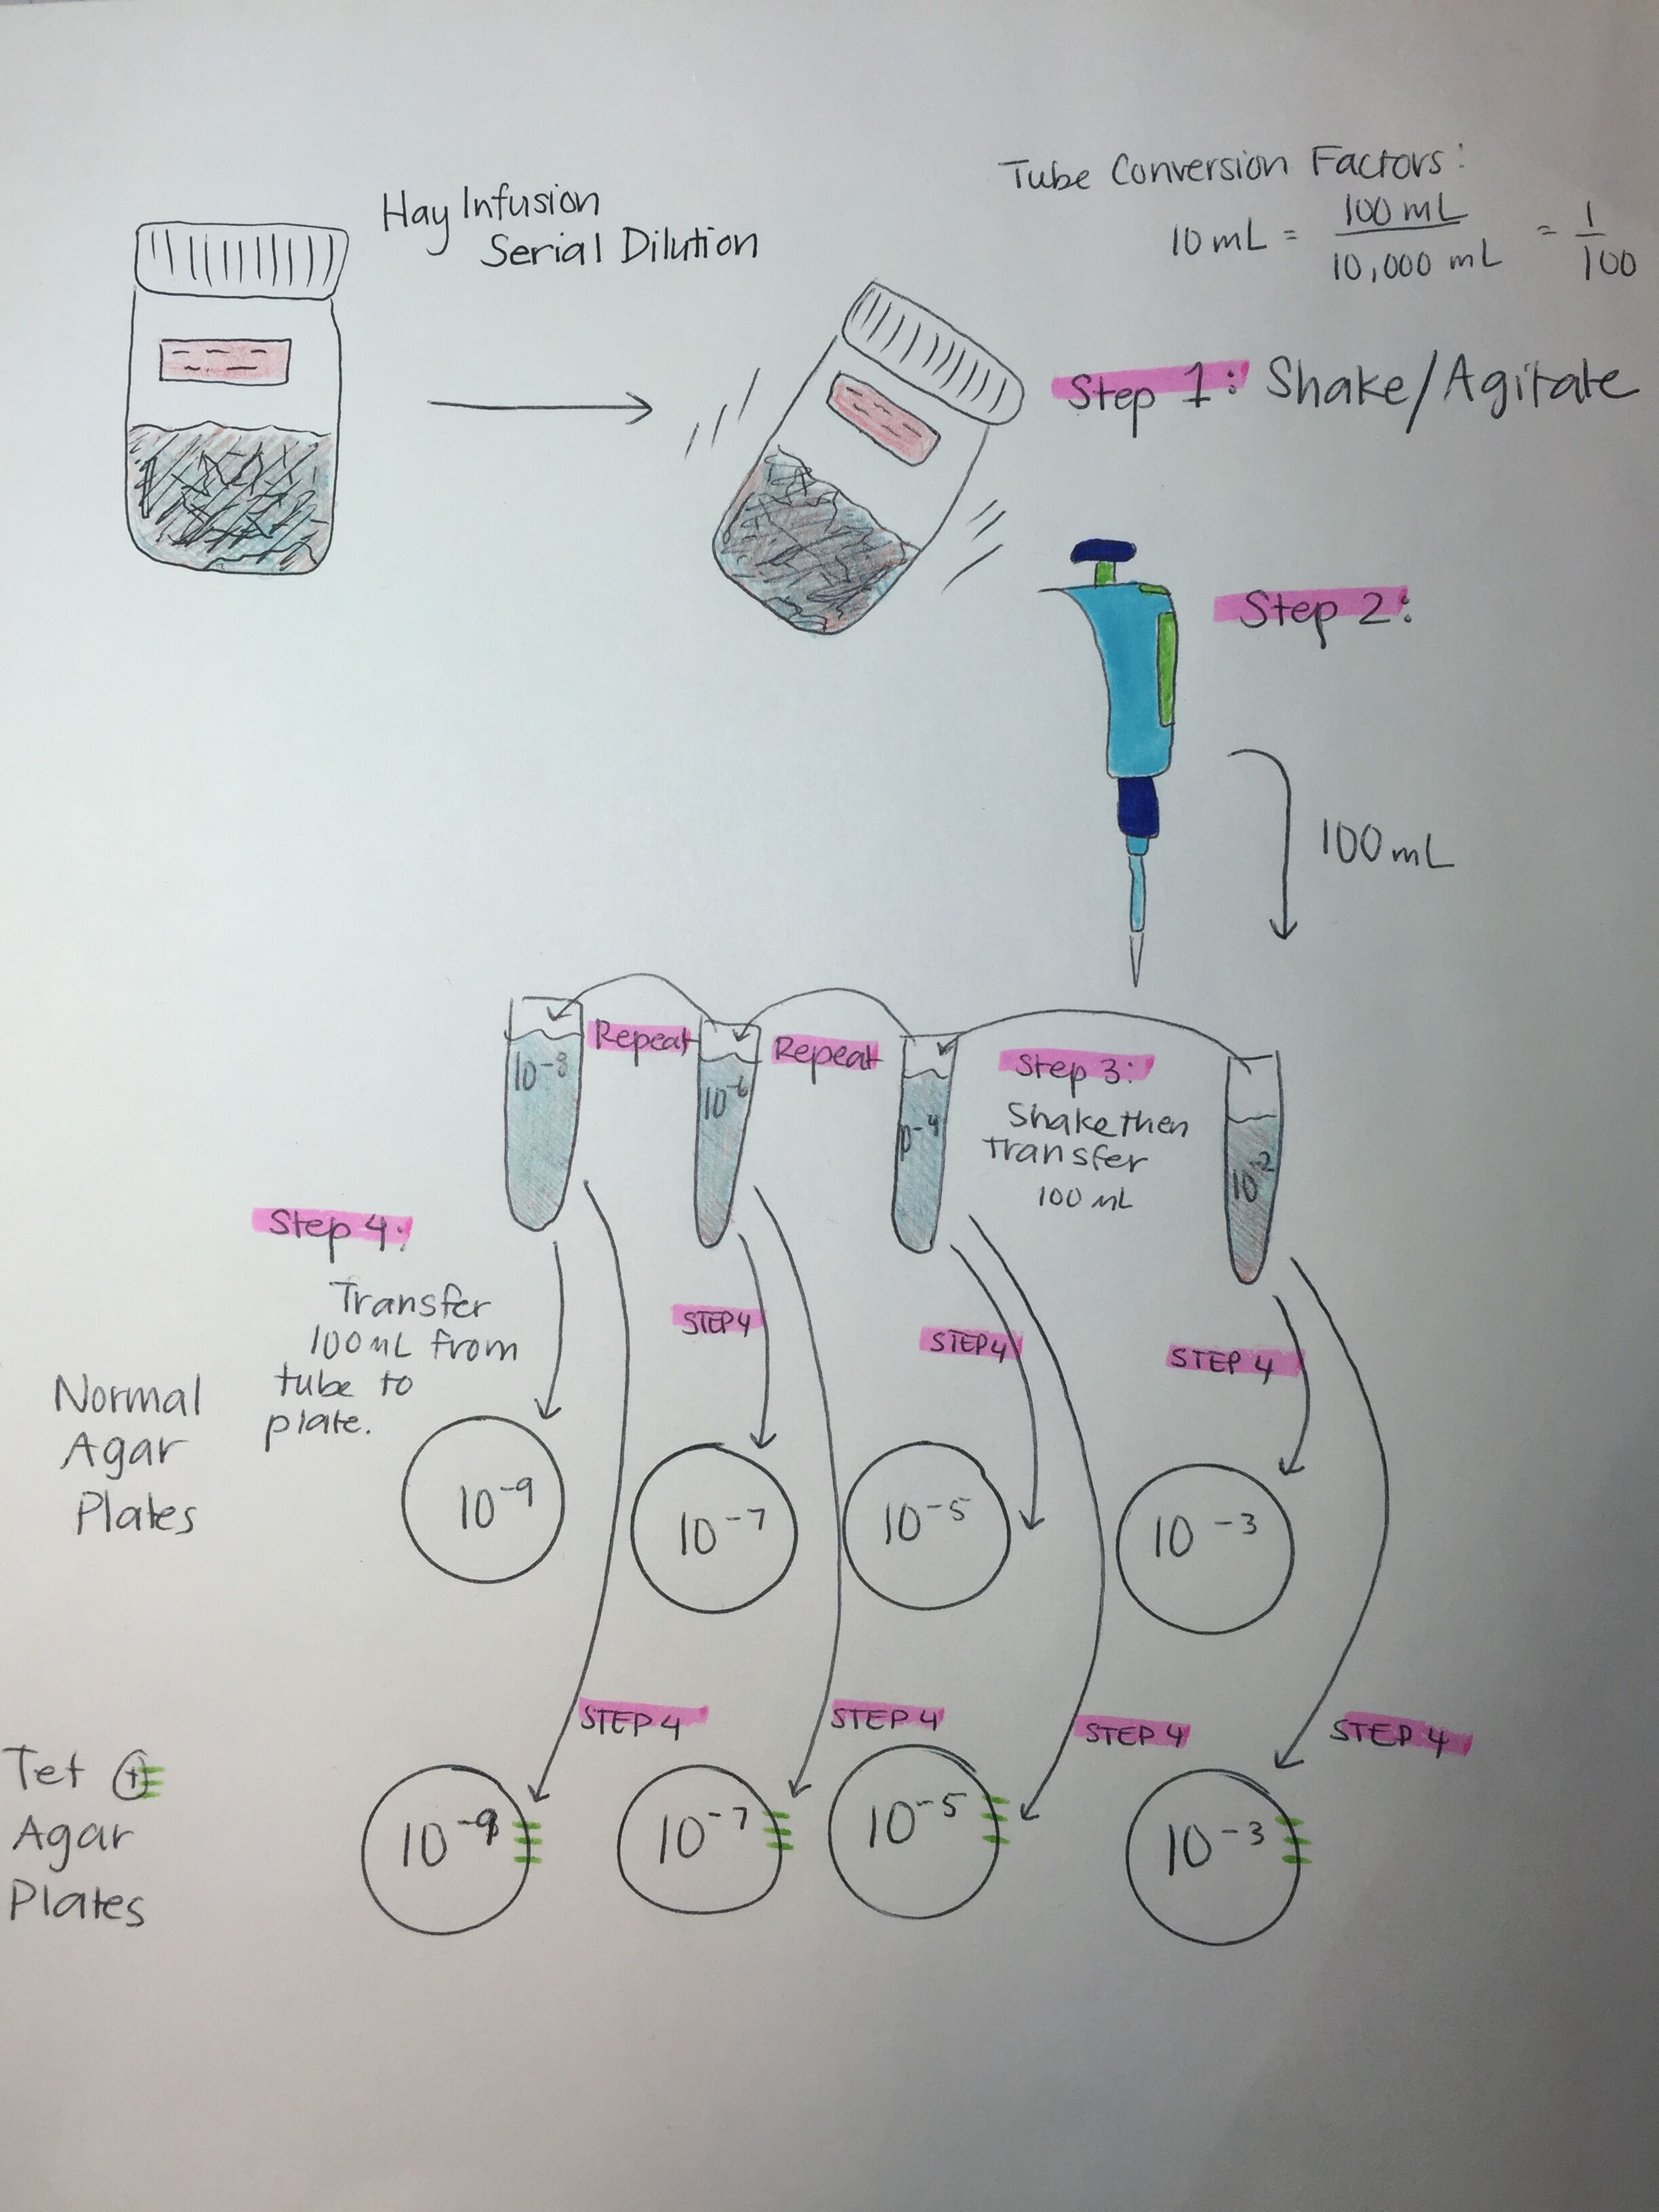 Hay Infusion
Serial Dilution
Tube Conversion Factors:
10 mL = 100 mL / 10,000 mL = 1 / 100
Step 1: Shake/Agitate
Step 2:
100 mL
Repeat
Repeat
Step 3:
Shake then
transfer
100 mL
10⁻⁸
10⁻⁶
10⁻⁴
10⁻²
Step 4:
Transfer
100 mL from
tube to
plate.
STEP 4
STEP 4
STEP 4
Normal
Agar
Plates
10⁻⁹
10⁻⁷
10⁻⁵
10⁻³
STEP 4
STEP 4
STEP 4
STEP 4
Tet +
Agar
Plates
10⁻⁹
10⁻⁷
10⁻⁵
10⁻³